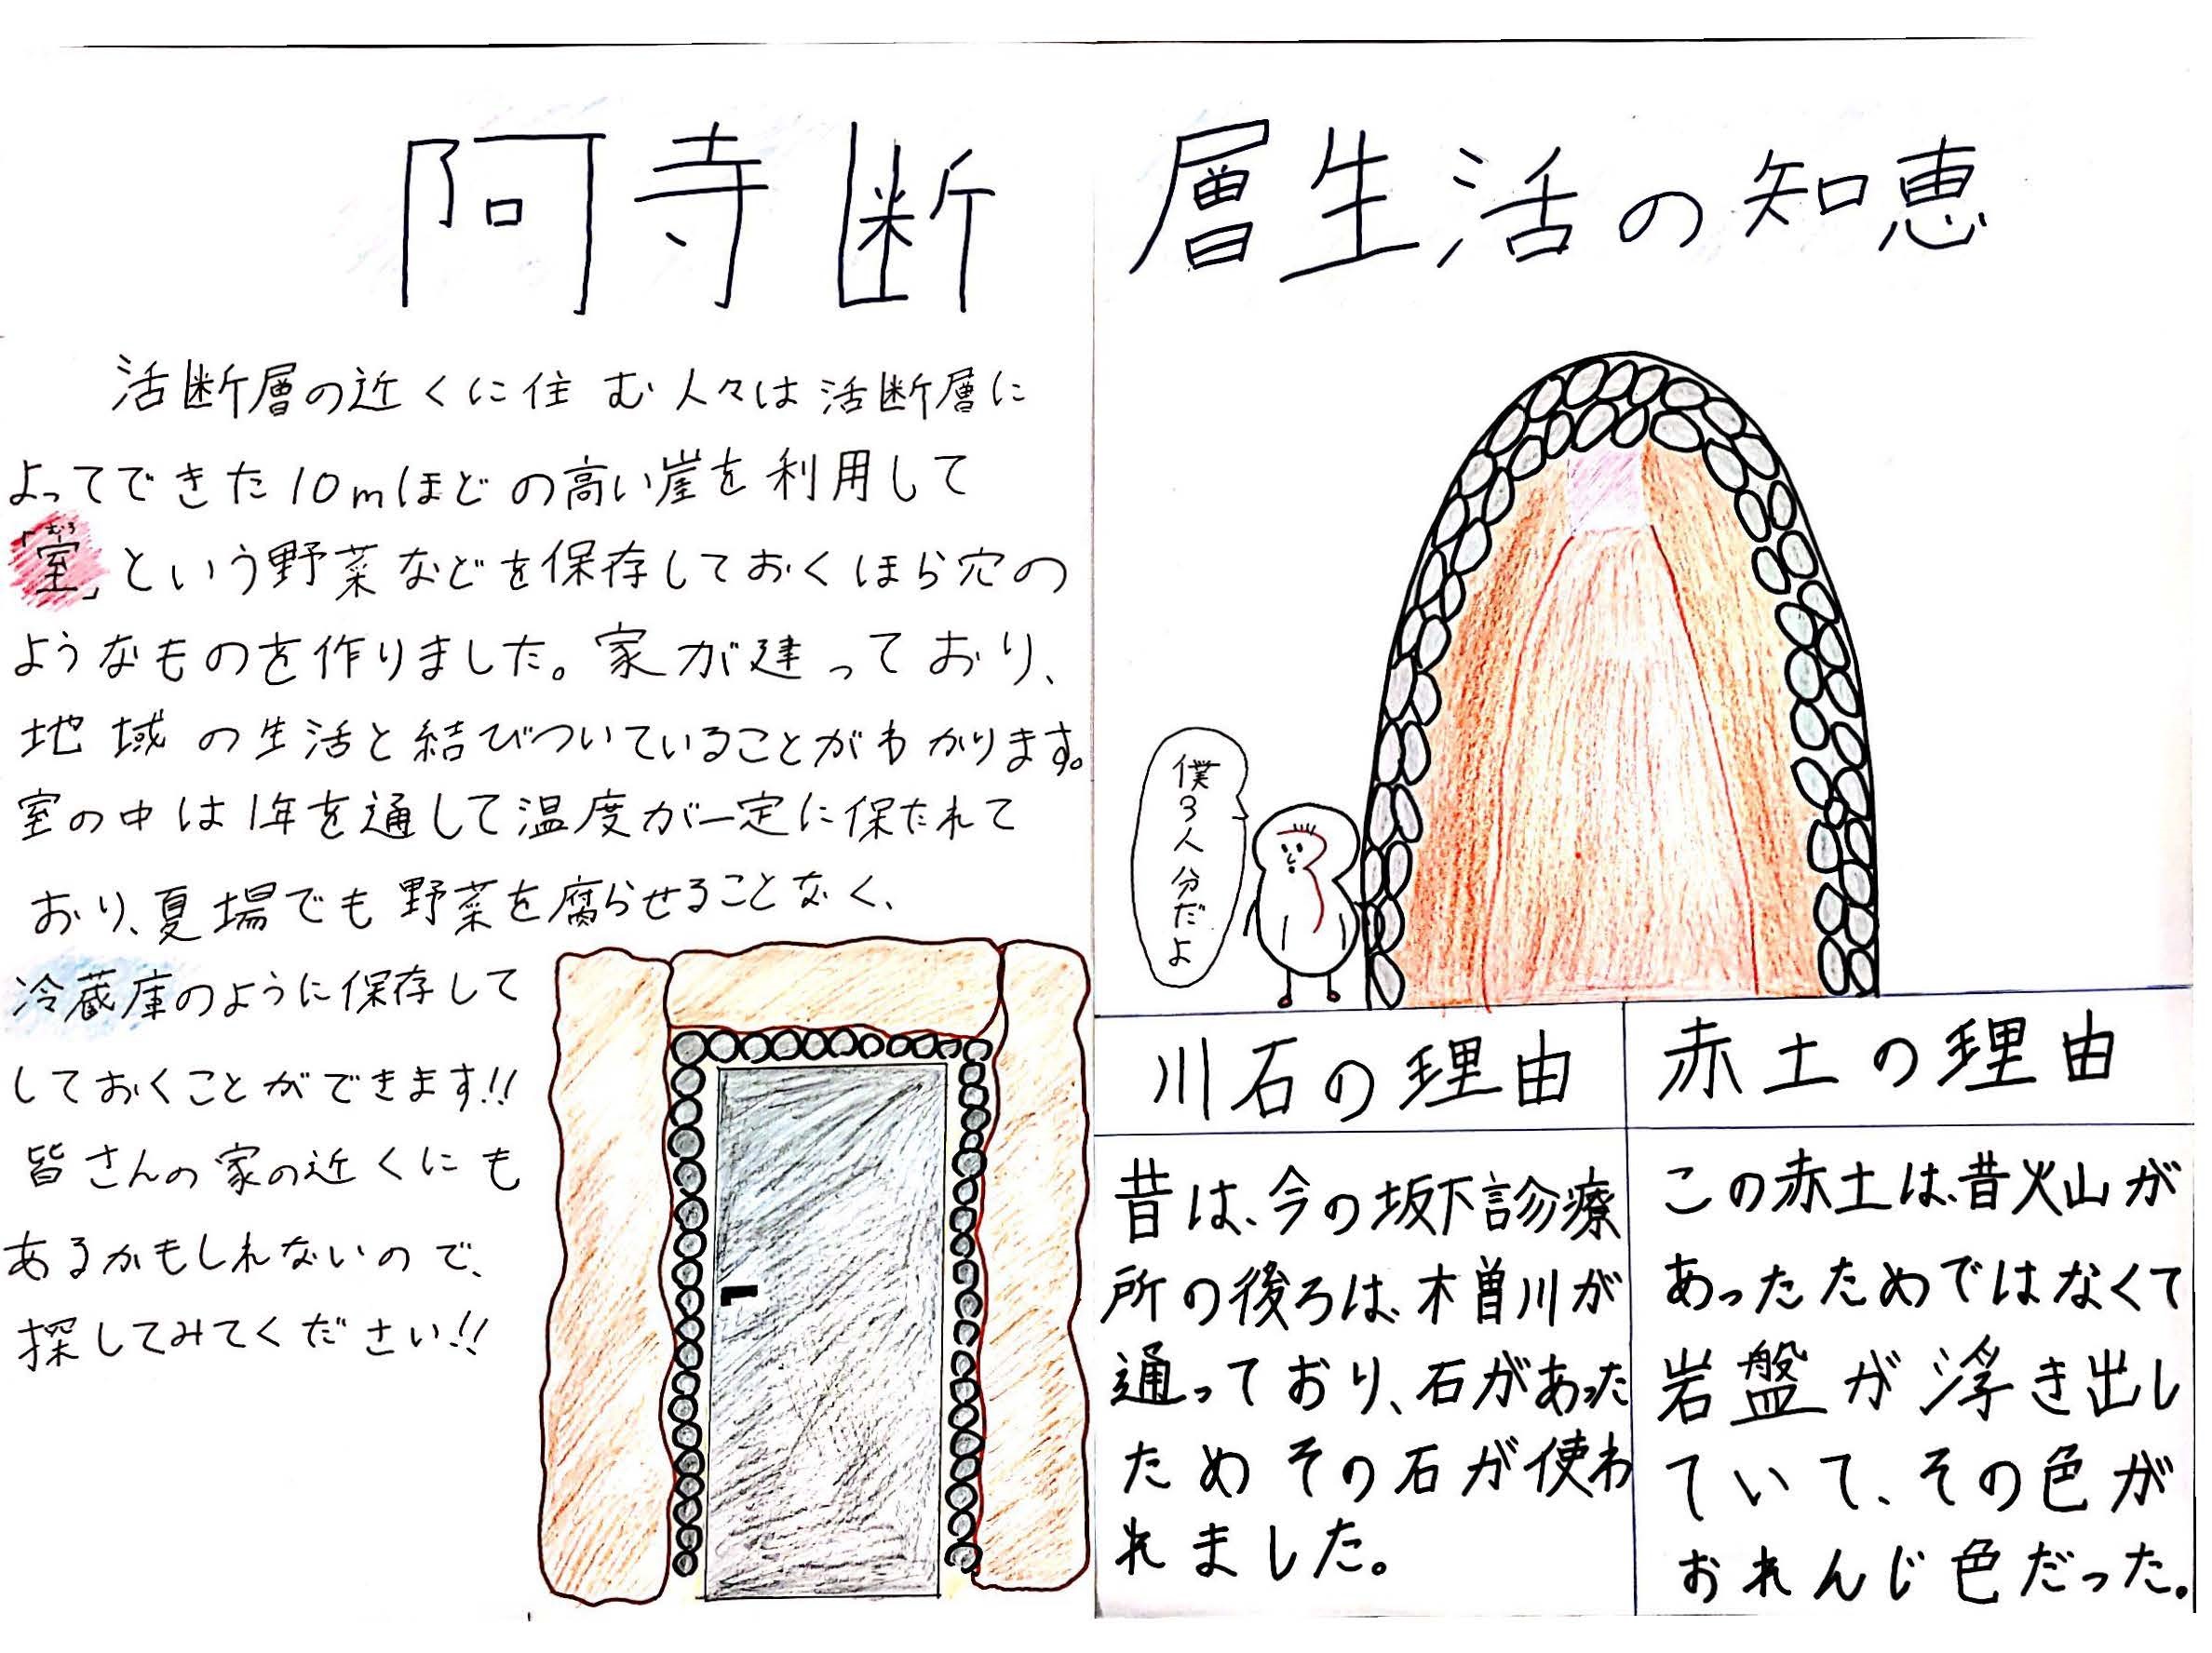 阿寺断層生活の知恵
活断層の近くに住む人々は活断層に
よってできた10mほどの高い崖を利用して
むろ
「室」という野菜などを保存しておくほら穴の
ようなものを作りました。家が建っており、
地域の生活と結びついていることがわかります。
室の中は1年を通して温度が一定に保たれて
おり、夏場でも野菜を腐らせることなく、
冷蔵庫のように保存して
しておくことができます!!
皆さんの家の近くにも
あるかもしれないので、
探してみてください!!
僕3人分だよ
川石の理由
昔は、今の坂下診療
所の後ろは、木曽川が
通っており、石があった
ためその石が使わ
れました。
赤土の理由
この赤土は、昔火山が
あったためではなくて
岩盤が浮き出し
ていて、その色が
おれんじ色だった。